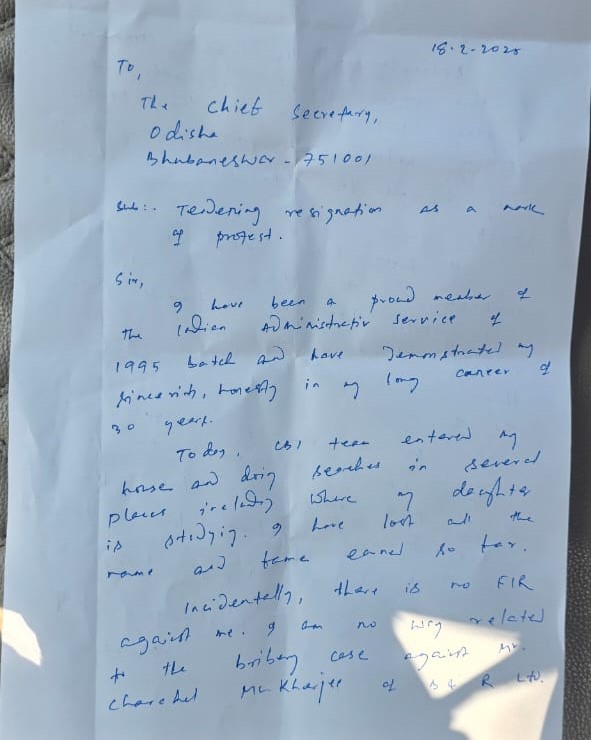 18.2.2025
To,
The Chief Secretary,
Odisha
Bhubaneswar - 751001
Sub:- Tendering resignation as a mark
of protest.
Sir,
I have been a proud member of
the Indian Administrativ Service of
1995 batch and have Demonstrated my
honesty in my long career of
30 years.
Today, CBI team entered my
house and doing searches in several
places including where my daughter
is studying. I have lost all the
name and fame earned so far.
Incidentally, there is no FIR
against me. I am no way related
to the bribery case against Mr.
Mukharjee of B & R Ltd.